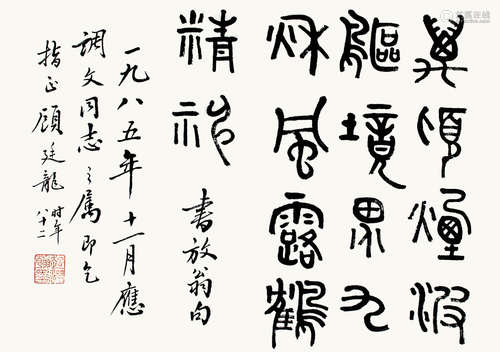 萬頃煙波
鷗境界九
秌風露鶴
精神
書放翁句
一九八五年十一月應
調文同志之屬即乞
指正 顧廷龍 时年八十二